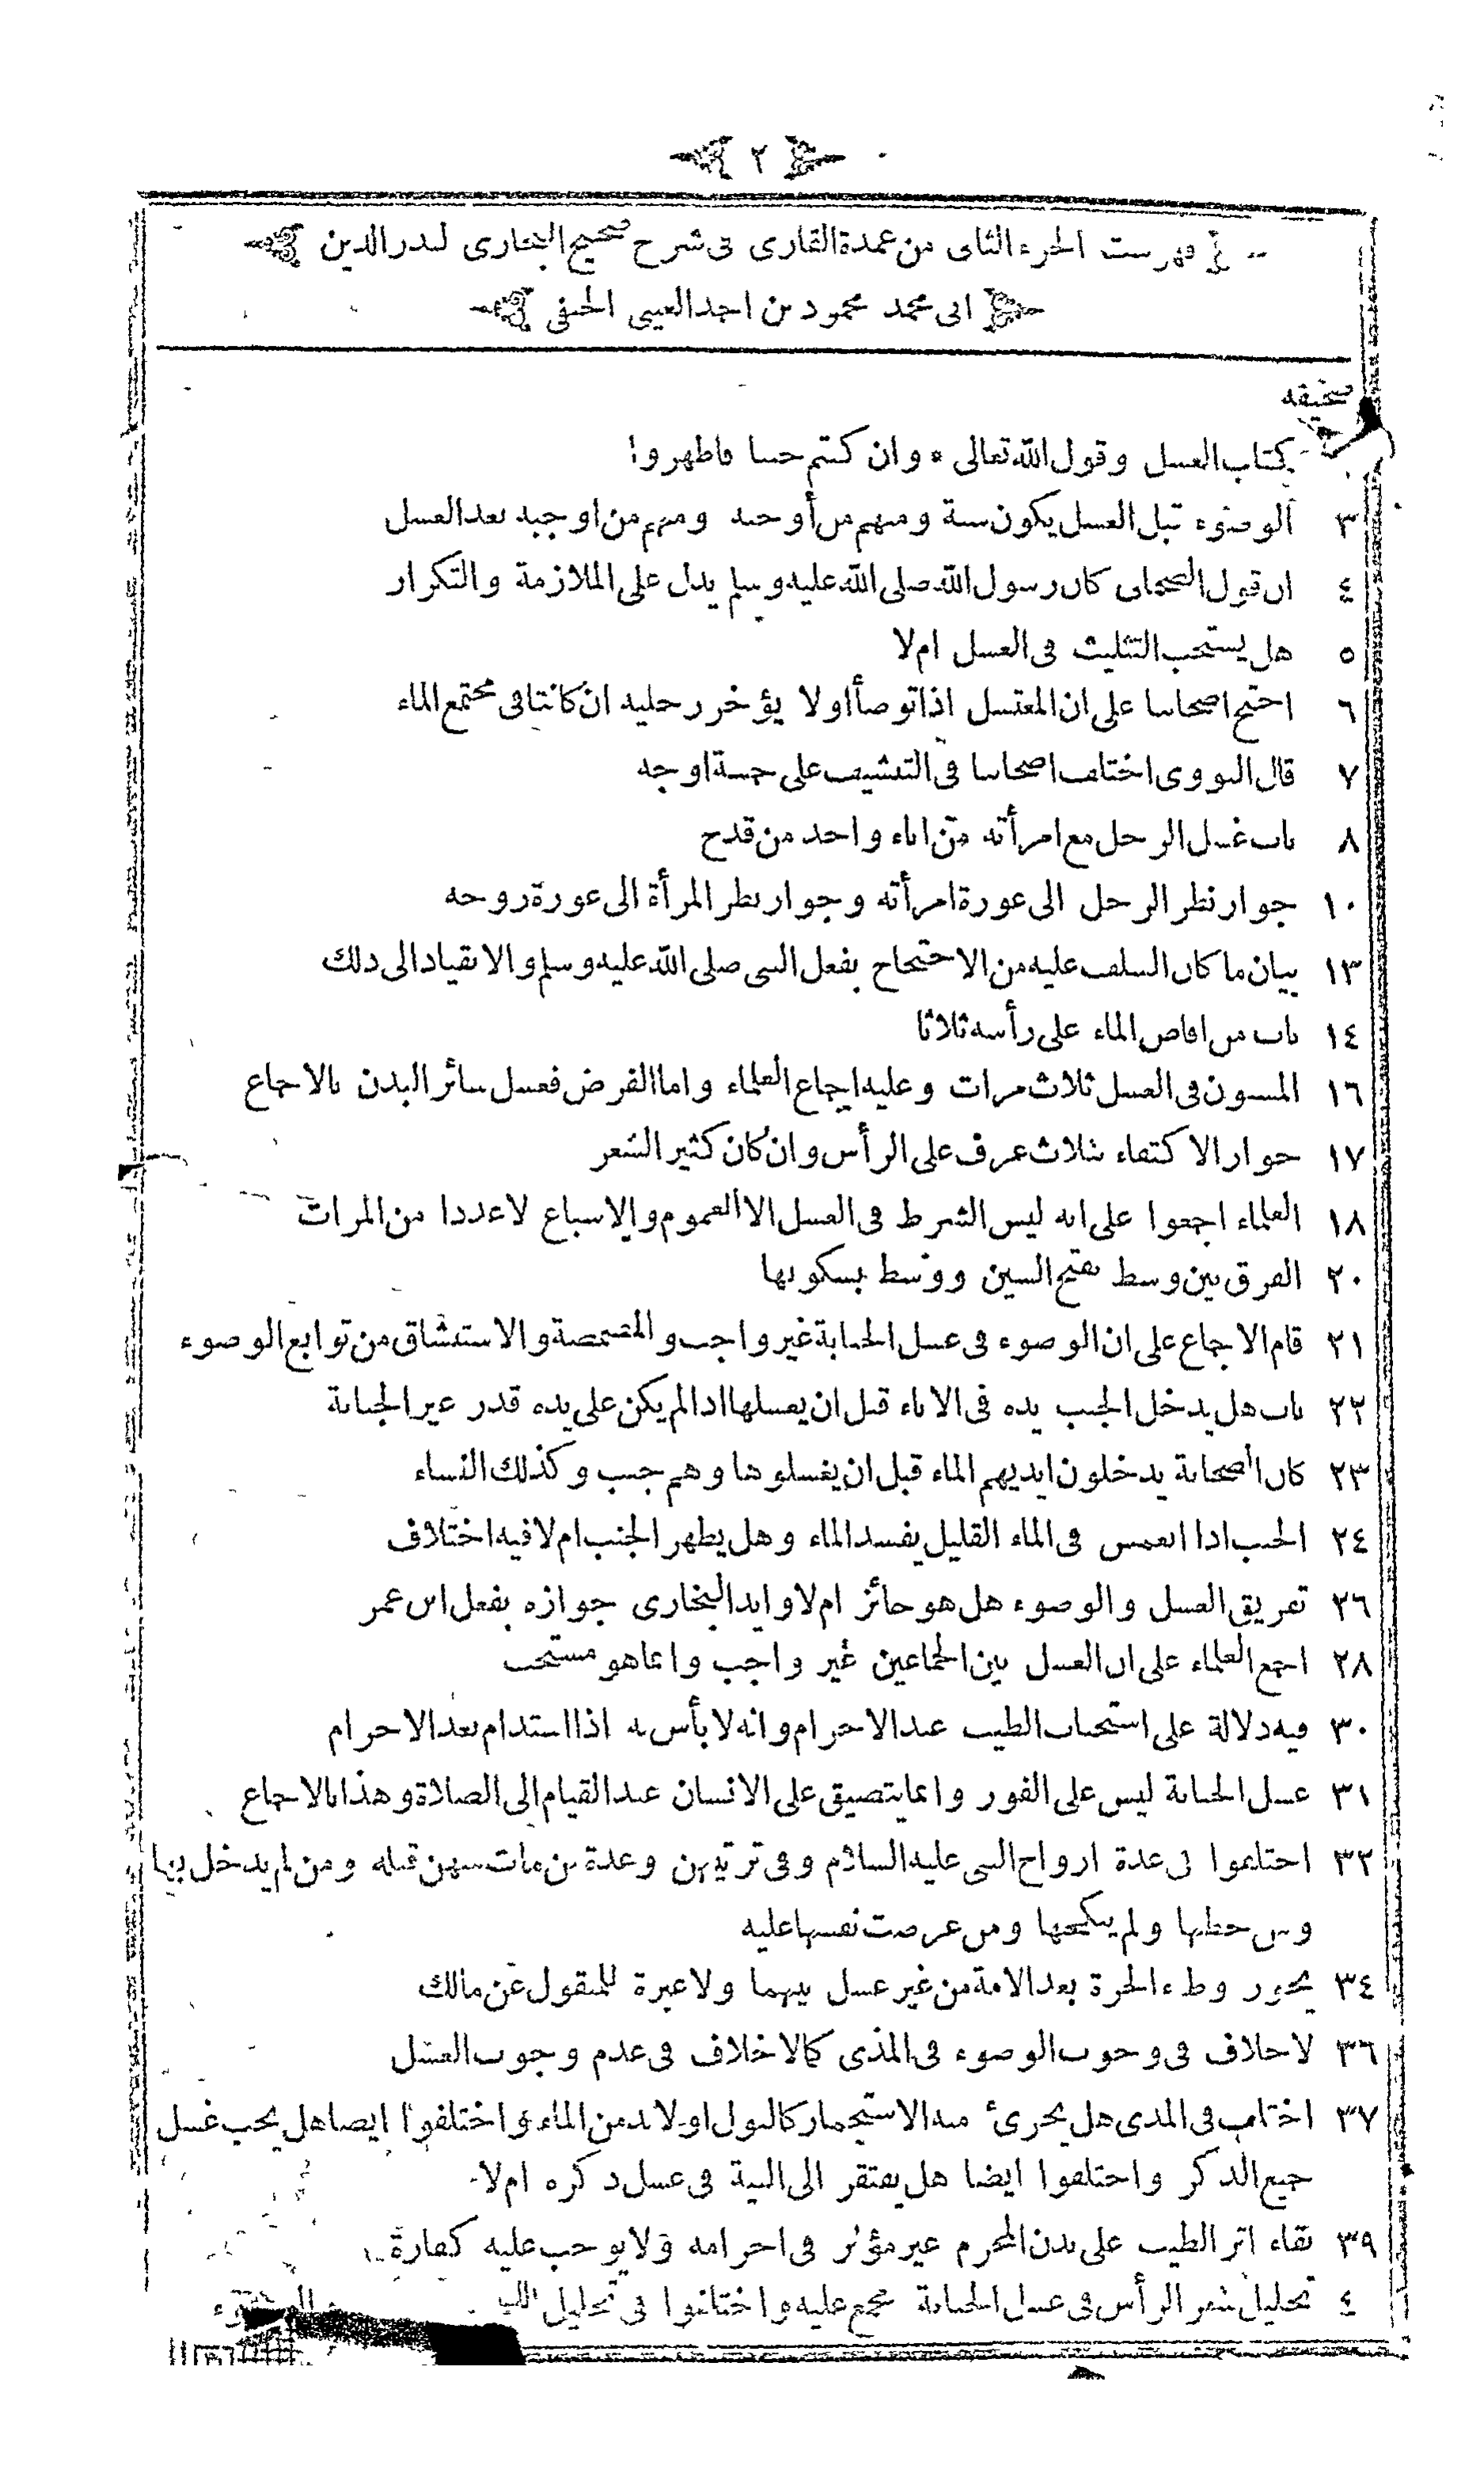 ٢
فهرست الجزء الثانى من عمدة القارى فى شرح صحيح البخارى لبدر الدين
ابى محمد محمود بن احمد العينى الحنفى
صحيفه
كتاب الغسل وقول الله تعالى * وان كنتم جنبا فاطهروا
٣ الوضوء قبل الغسل يكون سنة ومنهم من أوجبه ومنهم من اوجبه بعد الغسل
٤ ان قول الصحابى كان رسول الله صلى الله عليه وسلم يدل على الملازمة والتكرار
٥ هل يستحب التثليث فى الغسل ام لا
٦ احتج اصحابنا على ان المغتسل اذا توضأ اولا يؤخر رجليه ان كانتا فى مجتمع الماء
٧ قال النووى اختلف اصحابنا فى التنشيف على خمسة اوجه
٨ باب غسل الرجل مع امرأته من اناء واحد من قدح
١٠ جواز نظر الرجل الى عورة امرأته وجواز نظر المرأة الى عورة زوجه
١٣ بيان ما كان السلف عليه من الاحتجاج بفعل النبى صلى الله عليه وسلم والانقياد الى ذلك
١٤ باب من افاض الماء على رأسه ثلاثا
١٦ المسنون فى الغسل ثلاث مرات وعليه اجماع العلماء واما الفرض فغسل سائر البدن بالاجماع
١٧ جواز الاكتفاء بثلاث غرف على الرأس وان كان كثير الشعر
١٨ العلماء اجمعوا على انه ليس الشرط فى الغسل الا العموم والاسباغ لا عددا من المرات
٢٠ الفرق بين وسط بفتح السين ووسط بسكونها
٢١ قام الاجماع على ان الوضوء فى غسل الجنابة غير واجب والمضمضة والاستنشاق من توابع الوضوء
٢٢ باب هل يدخل الجنب يده فى الاناء قبل ان يغسلها اذا لم يكن على يده قذر غير الجنابة
٢٣ كان الصحابة يدخلون ايديهم الماء قبل ان يغسلوها وهم جنب وكذلك النساء
٢٤ الجنب اذا انغمس فى الماء القليل يفسد الماء وهل يطهر الجنب ام لا فيه اختلاف
٢٦ تفريق الغسل والوضوء هل هو جائز ام لا وايد البخارى جوازه بفعل ابن عمر
٢٨ اجمع العلماء على ان الغسل بين الجماعين غير واجب وانما هو مستحب
٣٠ فيه دلالة على استحباب الطيب عند الاحرام وانه لا بأس به اذا استدام بعد الاحرام
٣١ غسل الجنابة ليس على الفور وانما يتضيق على الانسان عند القيام الى الصلاة وهذا بالاجماع
٣٢ اختلفوا فى عدة ازواج النبى عليه السلام وفى ترتيبهن وعدة من مات منهن قبله ومن لم يدخل بها
ومن خطبها ولم ينكحها ومن عرضت نفسها عليه
٣٤ يجوز وطء الحرة بعد الامة من غير غسل بينهما ولا عبرة للمنقول عن مالك
٣٦ لا خلاف فى وجوب الوضوء فى المذى كما لا خلاف فى عدم وجوب الغسل
٣٧ اختلف فى المذى هل يجزئ منه الاستجمار كالبول او لا بد من الماء واختلفوا ايضا هل يجب غسل
جميع الذكر واختلفوا ايضا هل يفتقر الى النية فى غسل ذكره ام لا
٣٩ بقاء اثر الطيب على بدن المحرم غير مؤثر فى احرامه ولا يوجب عليه كفارة
٤ تخليل شعر الرأس فى غسل الجنابة مجمع عليه واختلفوا فى تخليل